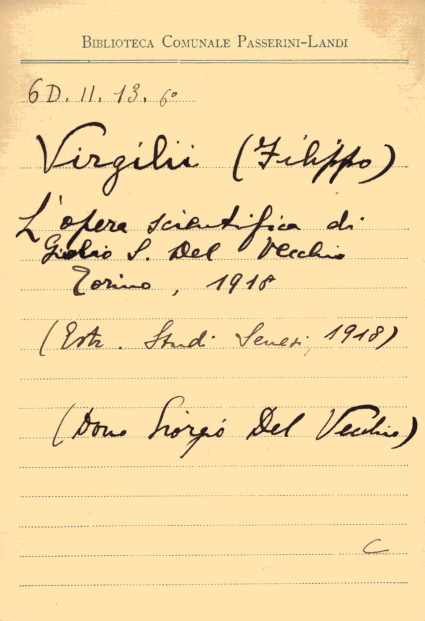 BIBLIOTECA COMUNALE PASSERINI-LANDI
6 D. II. 13. 6°
Virgilii (Filippo)
L'opera scientifica di
Giulio S. Del Vecchio
Torino, 1918
(Estr. Studi Senesi, 1918)
(Dono Giorgio Del Vecchio)
C